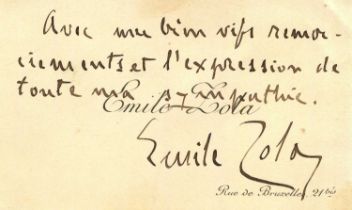 Avec mes bien vifs remer-
ciements et l'expression de
toute ma sympathie.
Emile Zola
Emile Zola
Rue de Bruxelles, 21bis